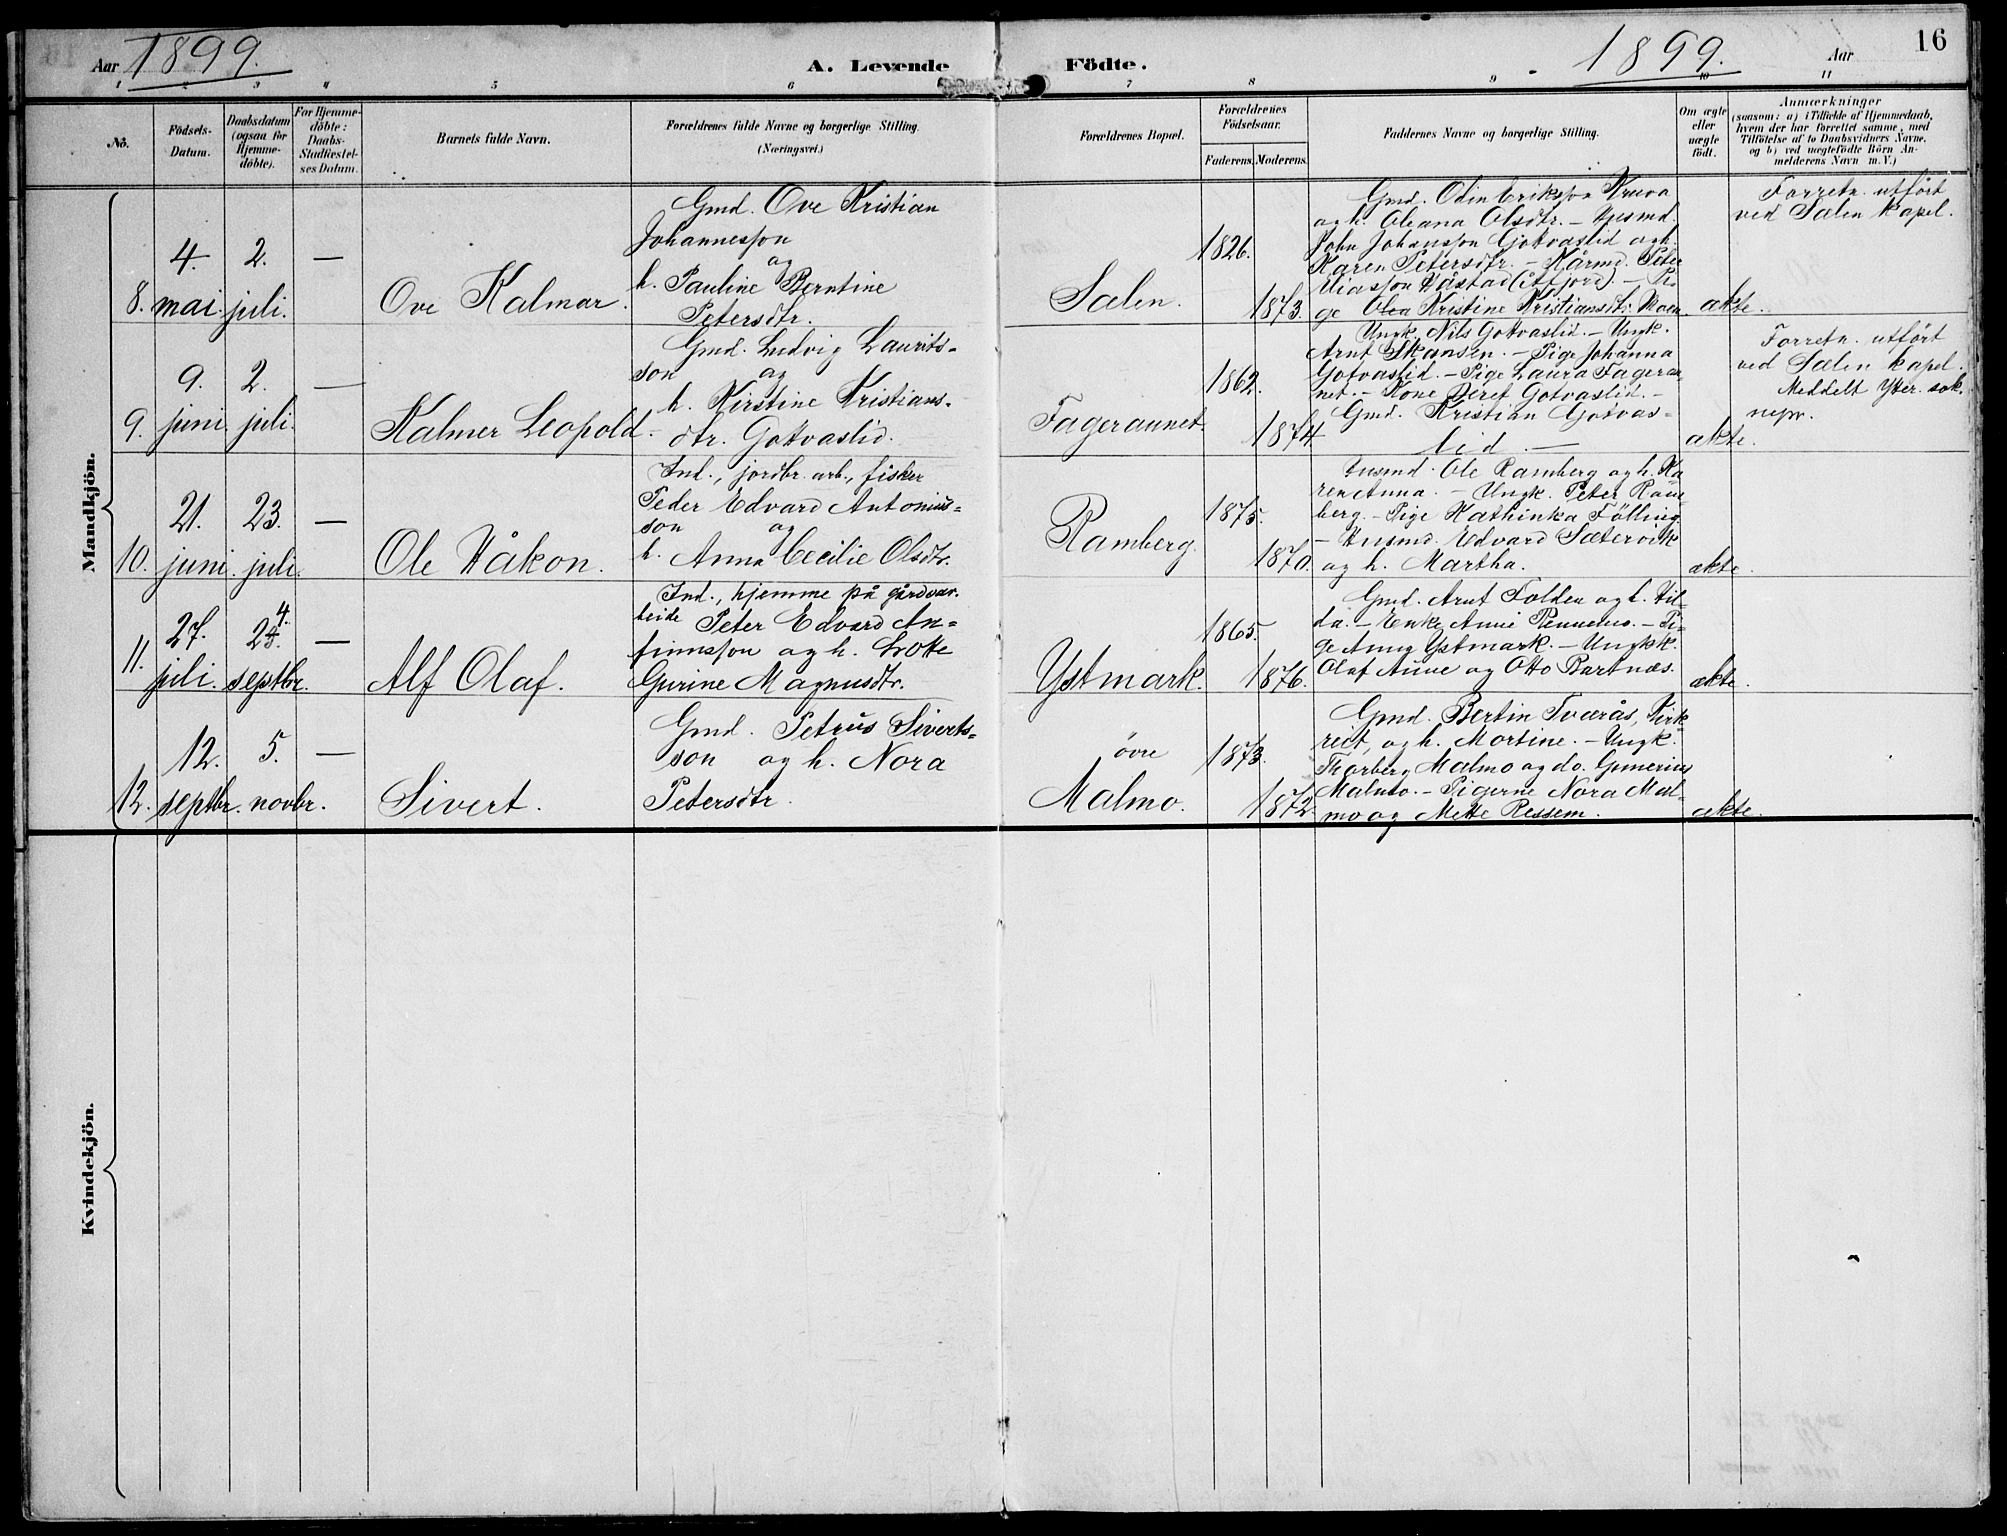 Aar 1899.
A. Levende Födte.
1899. Aar
16
1 2 3 4 5 6 7 8 9 10 11
No.
Födsels-
Datum.
Daabsdatum
(ogsaa for
Hjemme-
döbte).
For Hjemme-
döbte:
Daabs-
Stadfæstel-
ses Datum.
Barnets fulde Navn.
Forældrenes fulde Navne og borgerlige Stilling.
(Næringsvei.)
Forældrenes Bopæl.
Forældrenes
Födselsaar.
Faderens. Moderens.
Faddernes Navne og borgerlige Stilling.
Om ægte
eller
uægte
födt.
Anmærkninger
(saasom: a) i Tilfælde af Hjemmedaab,
hvem der har forrettet samme, med
Tilföielse af to Daabsvidners Navne,
og b) ved uægtefödte Börn An-
melderens Navn m. V.)
Mandkjön.
8. 4. mai. 2. juli. —
Ove Kalmar.
Gmd. Ove Kristian
Johannesson
og
h. Pauline Berntine
Petersdtr.
Sælen.
1826. 1873.
Gmd. Odin Eriksson
og h. Oleana Olsdtr. –
John Johansson Gotvaslid og h.
Karen Petersdtr. – Kårmd. Peter
Håstad (Åfjord). – Pi-
ge Olea Kristine Kristiansdtr.
ækte.
Forretn. utført
ved Sælen kapel.
9. 9. juni. 2. juli. —
Kalmer Leopold.
Gmd. Ludvig Laurits-
son og
h. Kirstine Kristians-
dtr. Gotvaslid.
Fageraunet.
1862. 1874
Ungk. Nils Gotvaslid. – Ungk.
Arnt Skansen. – Pige Johanna
Gotvaslid. – Pige Laura Fagerau-
net. – Kone Beret Gotvaslid. –
Gmd. Kristian Gotvas-
lid. —
ækte.
Forretn. utført
ved Sælen kapel.
Meddelt Ytter. sok.
nepr.
10. 21. juni. 23. juli. —
Ole Håkon.
Ind., jordbr. arb., fisker
Peder Edvard Antonius-
son og
h. Anna Cecilie Olsdtr.
Ramberg.
1875. 1870.
Husmd. Ole Ramberg og h. Ka-
ren Anna. – Ungk. Peter Ram-
berg. – Pige Kathinka Fölling.
– Husmd. Edvard Sætervik
og h. Martha.
ækte.
11. 27. juli. 24. septbr. —
Alf Olaf.
Ind., hjemme på gårdsar-
beide Peter Edvard An-
finnsson og h. Lotte
Gurine Magnusdtr.
Ystmark.
1865. 1876.
Gmd. Arnt Folden og h. Hil-
da. – Enke Anne – Pi-
ge Anna Ystmark. – Ungkk.
Olaf Aune og Otto Bartnæs.
ækte.
12. 12. septbr. 5. novbr. —
Sivert.
Gmd. Petrus Siverts-
son og h. Nora
Petersdtr.
øvre
Malmo.
1873. 1872.
Gmd. Bertin Tværås, Kirk-
reit, og h. Mortine. – Ungk.
Thorberg Malmo og do. Gunerius
Malmo. – Pigerne Nora Mal-
mo og Mette Ressem.
ækte.
Kvindekjön.